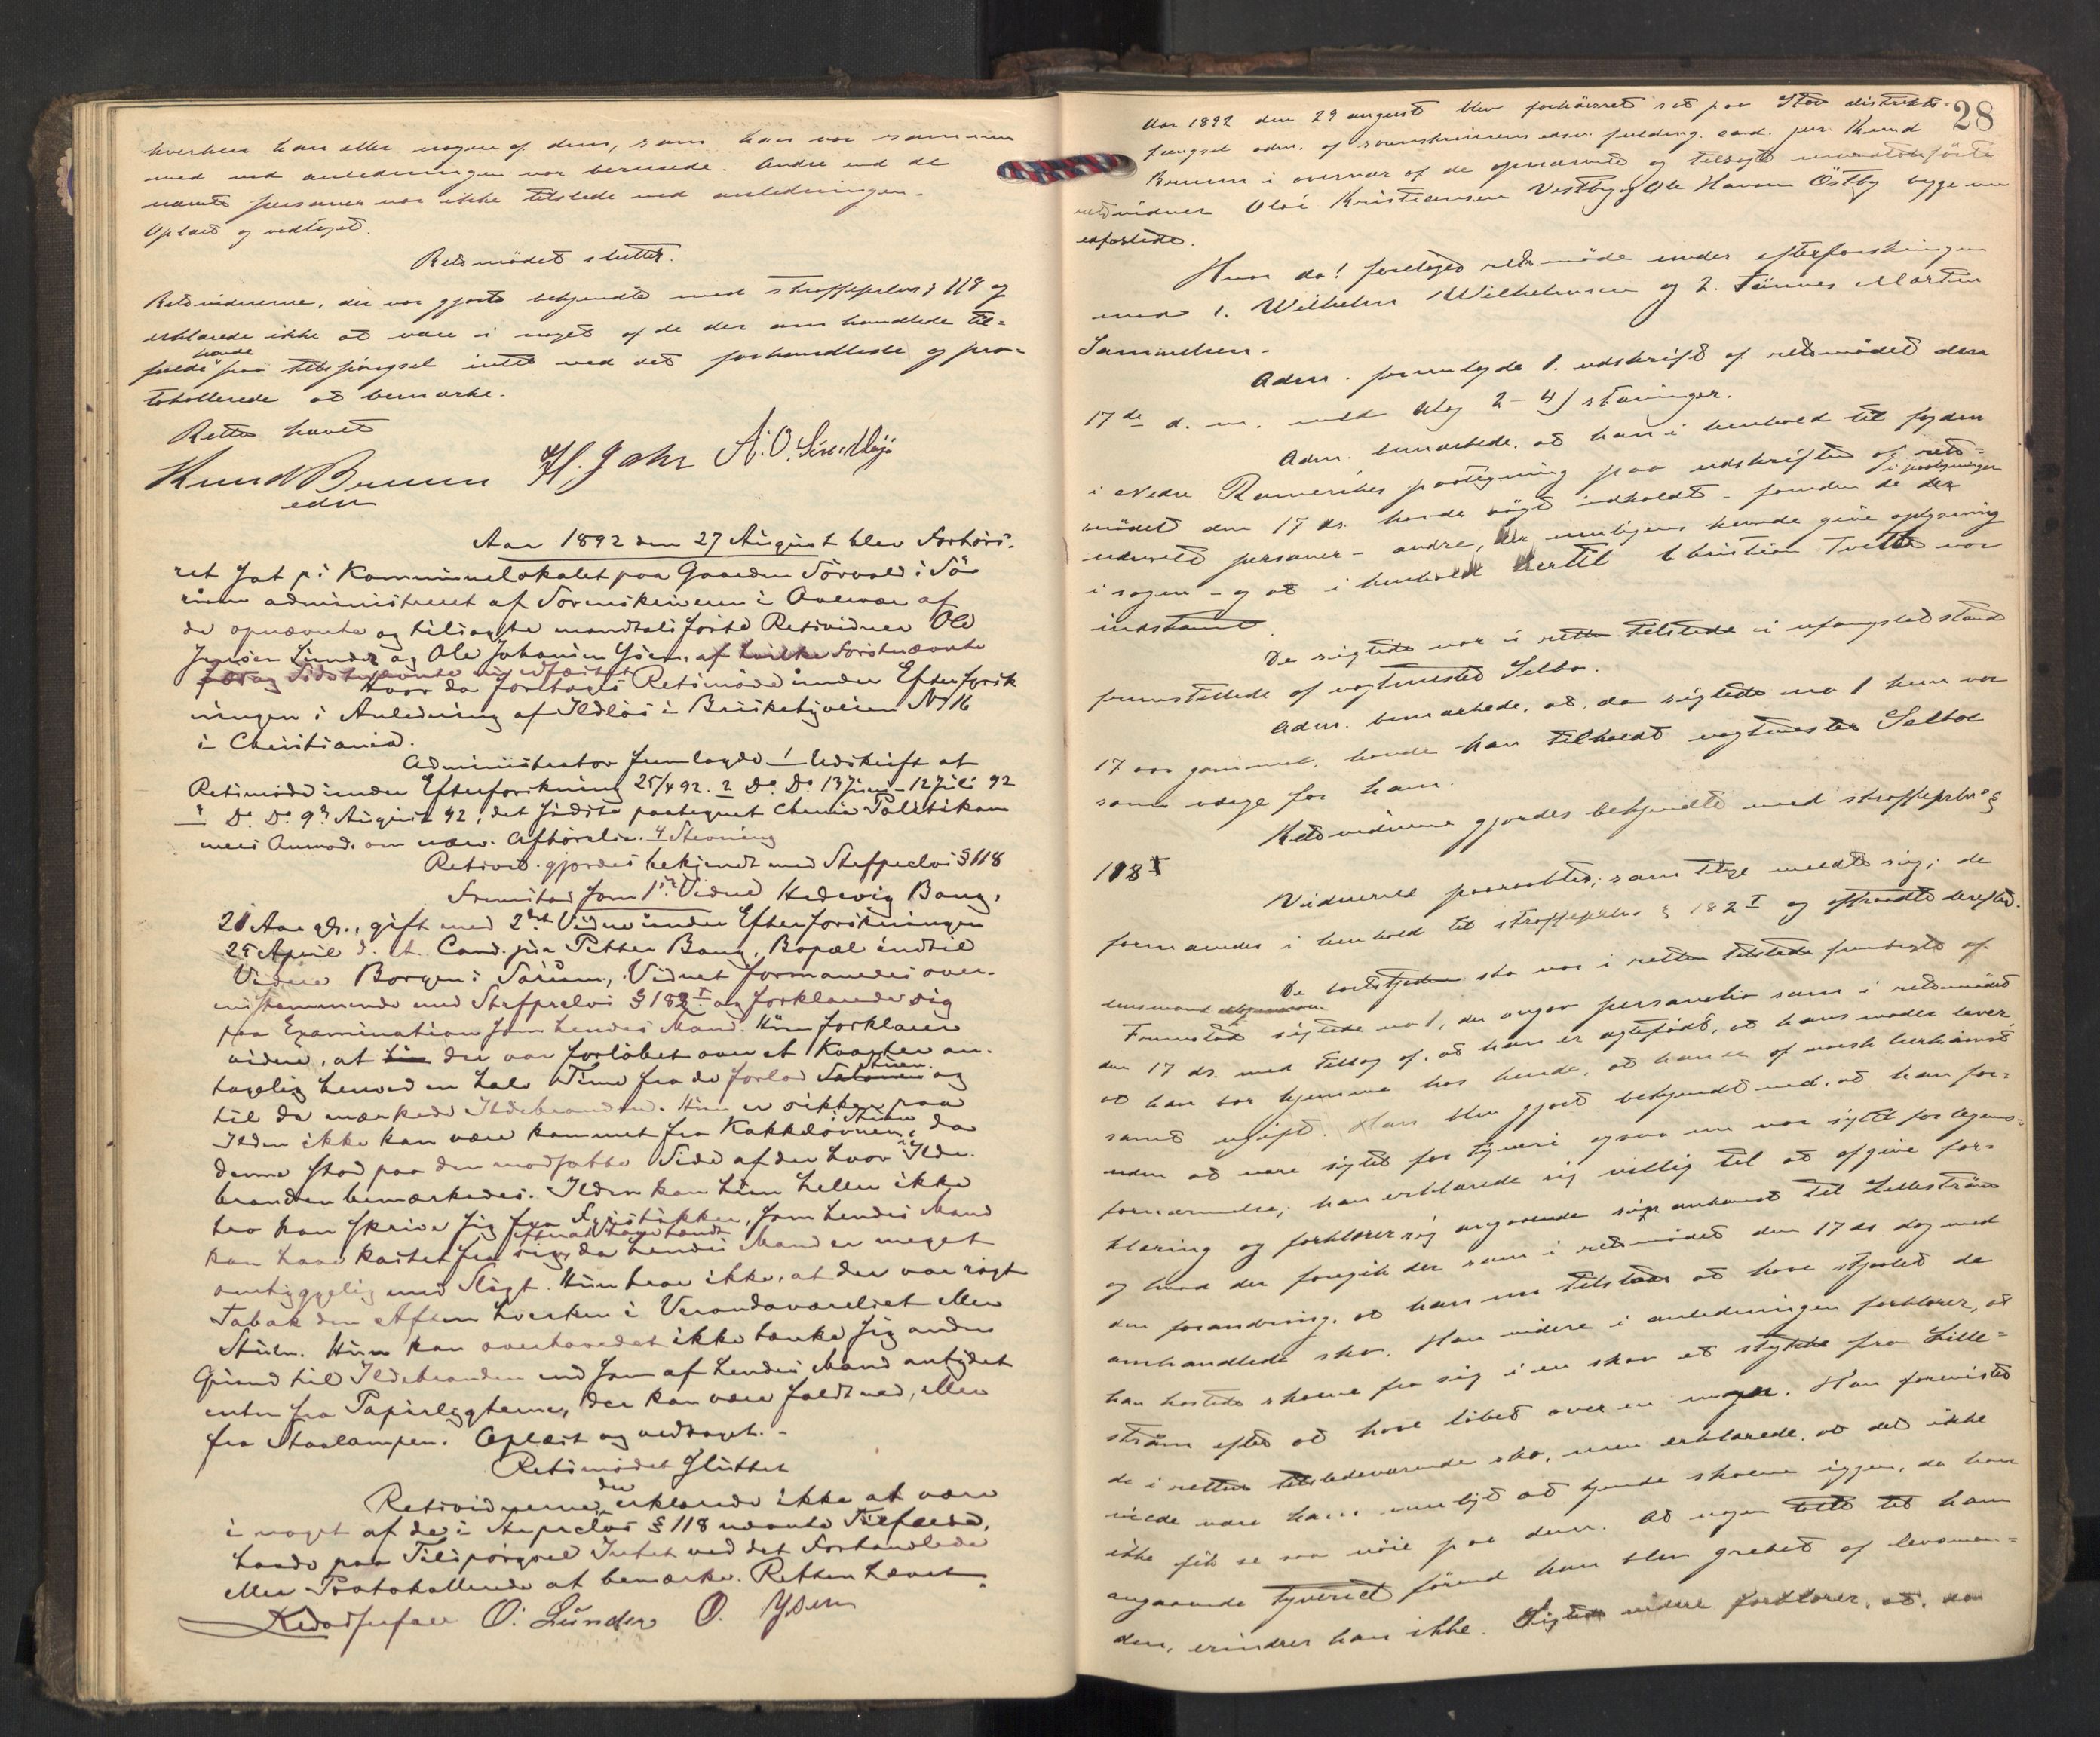 hverken han eller nogen af dem, som han var sammen
med ved anledningen var berusede. Andre end de
nævnte personer var ikke tilstede ved anledningen.
Oplæst og vedtaget.
Retsmødet sluttet.
Retsvidnerne, der var gjorte bekjendte med straffeprlov § 118 og
erklærede ikke at være i noget af de der omhandlede til=
fælde havde paa tilspørgsel intet ved det forhandlede og pro=
tokollerede at bemærke.
Retten hævet
Knud Bruun H. Jahr A. O.
edsv
Aar 1892 den 27 August blev Forhørs-
ret sat på Kommunelokalet paa Gaarden Sørvald i Sø-
rum administreret af Sorenskriveren i Overvær af
de opnævnte og tilsagte mandtalsførte Retsvidner Ole
Jensen Lunder og Ole Johansen Ysern, af hvilke Førstnævnte
Sidstnævnte
Hvor da foretoges Retsmøde under Efterforsk
ningen i Anledning af Ildløs i Briskebyveien No 16
i Christiania.
Administrator fremlagde 1 Udskrift af
Retsmøde under Efterforskning 25/4 92. 2 Do Do 13 Juni - 12 Juli 92
3 Do Do 9de August 92, det sidste paategnet Chra Politikam
mers Anmod. om nærv. Afhørelse. 4 Stevning
Retsvid. gjordes bekjendt med Strfprclov § 118
Fremstod som 1ste Vidne Hedevig Bang,
21 Aar gl., gift med 2det Vidne under Efterforskningen
25 April d. A. Cand. jur Petter Bang, Bopæl indtil
Videre Borgen i Sørum, Vidnet formanedes over-
ensstemmende med Strfprclov § 182 I og forklarede sig
paa Examination som hendes Mand. Hun forklarer
videre, at der var forløbet over et Kvarter an-
tagelig henved en halv Time fra de forlod Stuen og
til de mærkede Ildebranden. Hun er sikker paa
Ilden ikke kan være kommet fra Kakkelovnen i Stuen, da
denne stod paa den modsatte Side af der hvor Ilde-
branden bemærkedes. Ilden kan hun heller ikke
tro kan skrive sig fra Fyrstikken, som hendes Mand
kan have kastet fra sig efterat have tændt da hendes Mand er meget
omhyggelig med Sligt. Hun tror ikke, at der var røgt
Tabak den Aften hverken i Verandaværelset eller
Stuen. Hun kan overhovedet ikke tænke sig anden
Grund til Ildebranden end som af hendes Mand antydet
enten fra Papirlygterne, der kan være faldt ned, eller
fra Staalampen. Oplæst og vedtaget. -
Retsmødet sluttet
Retsvidnerne, der erklærede ikke at være
i noget af de i Strprclov § 118 nævnte Tilfælde,
havde paa Tilspørgsel Intet ved det Forhandlede
eller Protokollerede at bemærke. Retten hævet.
O. Lunder O. Ysern
28
Aar 1892 den 29 august blev forhørsret sat paa Stav distrikts-
fængsel adm. af sorenskriverens edsv. fuldmg. cand. jur. Knud
Bruun i overvær af de opnævnte og tilsagte mandtalsførte
retsvidner Olai Kristiansen Vestby og Ole Hansen Østby begge nu
edfæstede.
Hvor da! foretoges retsmøde under efterforskningen
mod 1. Wilhelm Wilhelmsen og 2. Tønnes Martin
Samuelsen.
Adm. fremlagde 1. udskrift af retsmødet den
17de d. m. med bilag 2-4) stævninger.
Adm. bemærkede, at han i henhold til fogden
i Nedre Romerikes paategning paa udskriften af rets-
mødet den 17 ds. havde søgt indkaldt - foruden de der i paategningen
nævnte personer - andre, der muligens kunde give oplysning
i sagen - og at i henhold hertil Christian Tveter var
indstævnt.
De sigtede var i retten tilstede i ufængslet stand
fremstillede af vagtmester Selboe.
Adm. bemærkede, at, da sigtede no 1 kun var
17 aar gammel, havde han tilkaldt vagtmester Selboe
som værge for ham.
Retsvidnerne gjordes bekjendte med straffeprlov §
118 I
Vidnerne paaraabtes; samtlige meldte sig; de
formanedes i henhold til straffeprlov § 182 I og aftraadte derefter.
De bortstjaalne sko var i retten tilstede frembragt af
lensmand
Fremstod sigtede no 1, der angav personalia som i retsmødet
den 17 ds. med tillæg af, at han er ægtefødt, at hans moder lever,
at han bor hjemme hos hende, at han er af norsk herkomst
samt ugift. Han blev gjort bekjendt med, at han for-
uden at være sigtet for tyveri ogsaa nu var sigtet for legems-
fornærmelse; han erklærede sig villig til at afgive for-
klaring og forklarer sig angaaende sin ankomst til Lillestrøm
og hvad der foregik der som i retsmødet den 17 ds dog med
den forandring, at han nu tilstaar at have stjaalet de
omhandlede sko. Han videre i anledningen forklarer, at
han kastede skoene fra sig i en skov et stykke fra Lille=
strøm efter at have løbet over en myr. Han foreviste
de i retten tilstedeværende sko, men erklærede, at det ikke
vilde være ham muligt at kjende skoene igjen, da han
ikke fik se saa nøie paa dem. At nogen talte til ham
angaaende tyveriet førend han blev grebet af lensman-
den, erindrer han ikke. Sigtede videre forklarer, at, da